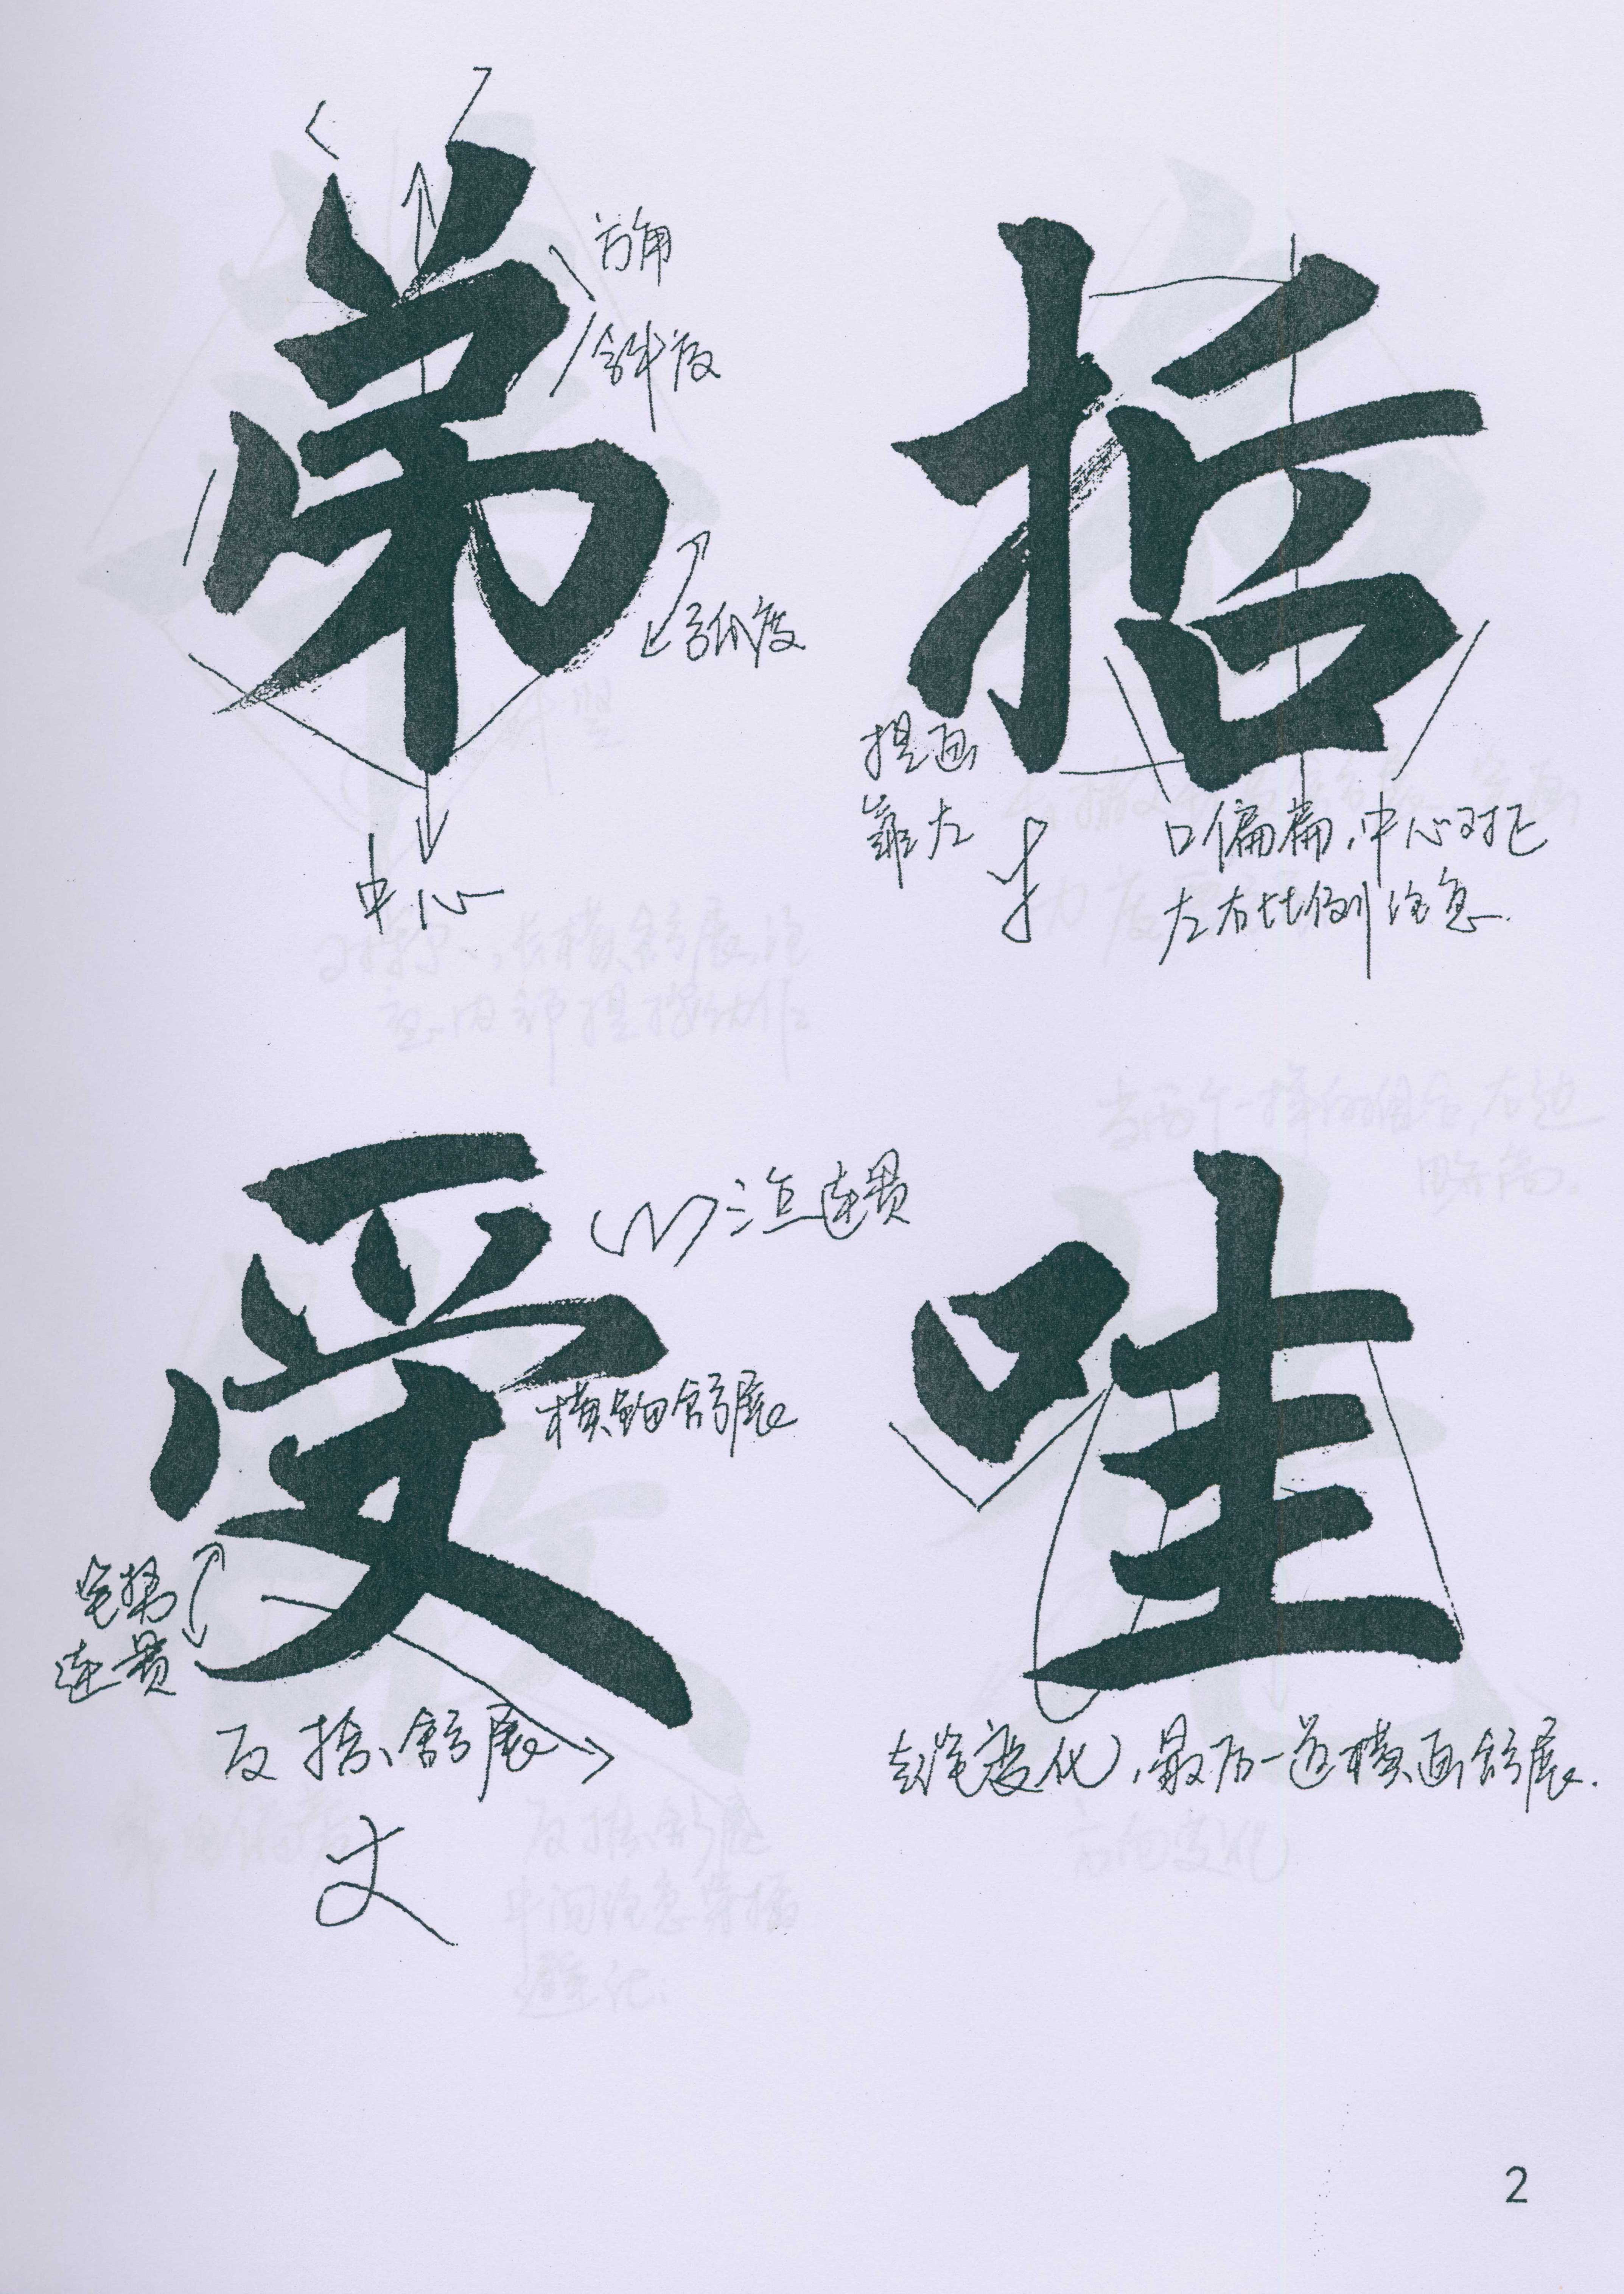 弟
方角
斜度
弧度
中心
括
提画
靠左
扌
口偏扁，中心对正
左右比例注意.
受
三点连贯
横钩舒展
笔势
连贯
反捺、舒展
丈
哇
起笔变化，最后一道横画舒展.
2